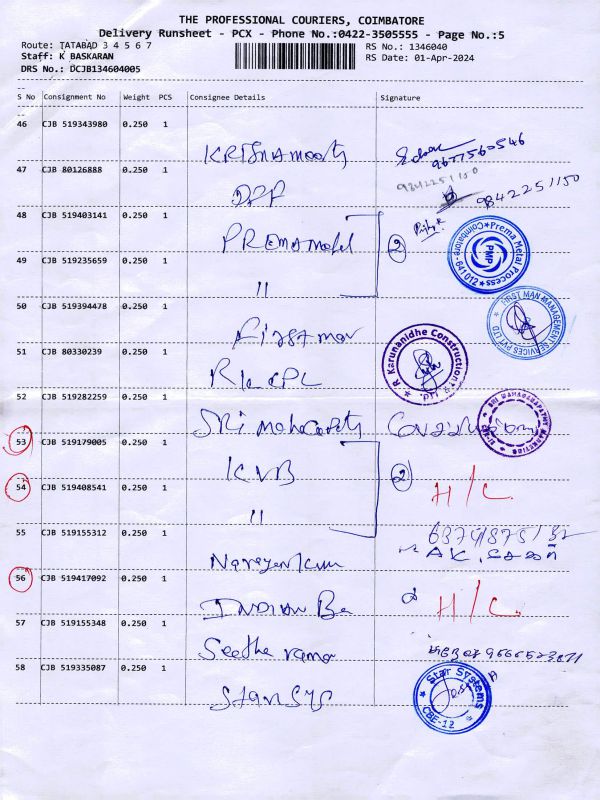 THE PROFESSIONAL COURIERS, COIMBATORE
Delivery Runsheet - PCX - Phone No.:0422-3505555 - Page No.:5
Route: TATABAD 3 4 5 6 7
RS No.: 1346040
Staff: K BASKARAN
RS Date: 01-Apr-2024
DRS No.: DCJB134604005
S No Consignment No Weight PCS Consignee Details Signature
46 CJB 519343980 0.250 1
9677560546
47 CJB 80126888 0.250 1
9842251150
DPF
9842251150
48 CJB 519403141 0.250 1
2
Prema Metal Process
Coimbatore-641012
PMP
49 CJB 519235659 0.250 1
"
50 CJB 519394478 0.250 1
FIRST MAN MANAGEMENT SERVICES PVT LTD
Firstman
51 CJB 80330239 0.250 1
R Karunanidhe Construction
52 CJB 519282259 0.250 1
SRI MAHAGANAPATHY MARKETING
53 CJB 519179005 0.250 1
KVB
2
54 CJB 519408541 0.250 1
H/C
"
55 CJB 519155312 0.250 1
56 CJB 519417092 0.250 1
H/C
57 CJB 519155348 0.250 1
Seetha rama
58 CJB 519335087 0.250 1
Star Systems
CBE-12
Star Sys